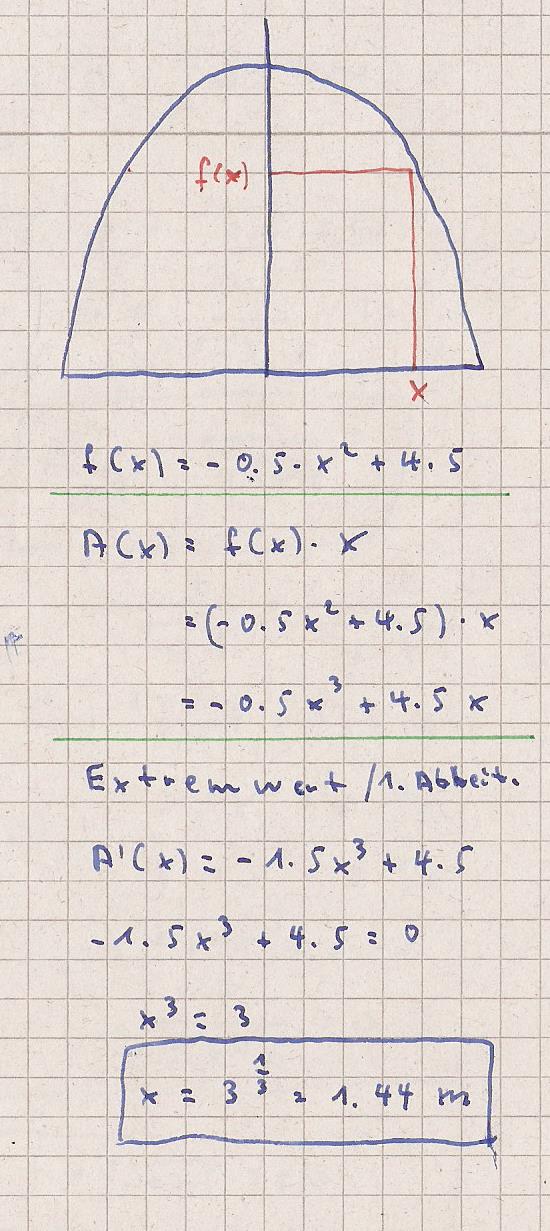 f(x)
x
f(x) = - 0.5 · x² + 4.5
A(x) = f(x) · x
= (- 0.5 x² + 4.5) · x
= - 0.5 x³ + 4.5 x
Extremwert / 1. Ableit.
A'(x) = - 1.5x³ + 4.5
-1.5x³ + 4.5 = 0
x³ = 3
x = 3^(1/3) = 1.44 m